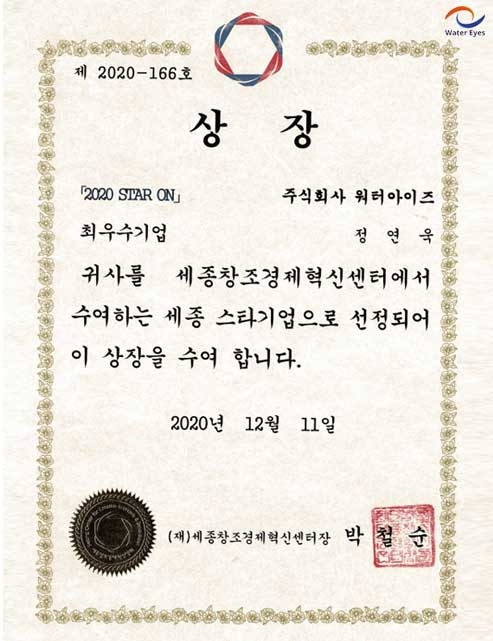 Water Eyes
제 2020-166호
상 장
「2020 STAR ON」 주식회사 워터아이즈
최우수기업 정 연 욱
귀사를 세종창조경제혁신센터에서
수여하는 세종 스타기업으로 선정되어
이 상장을 수여 합니다.
2020년 12월 11일
(재)세종창조경제혁신센터장 박 철 순